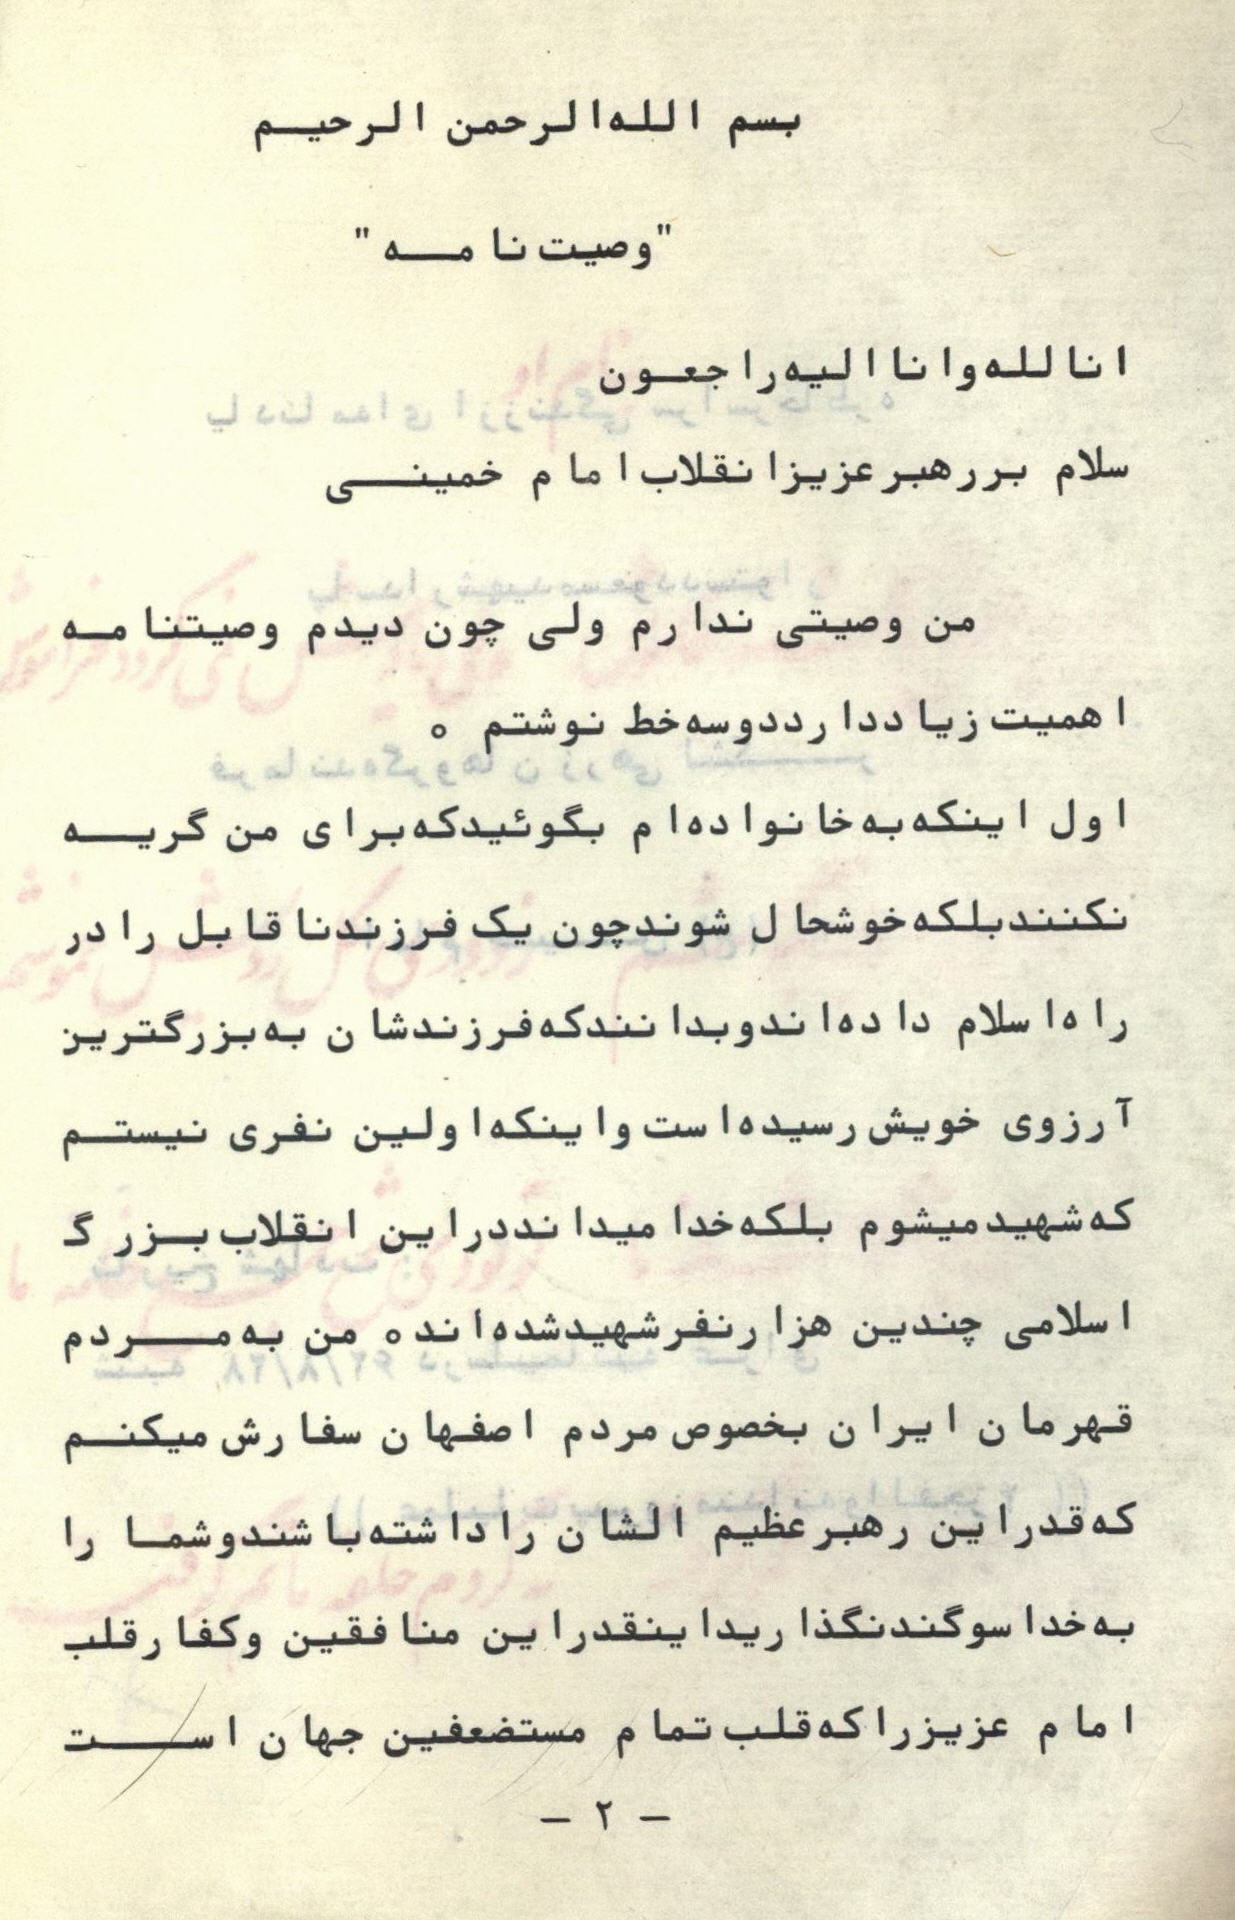 بسم الله الرحمن الرحیم
"وصیت نامه"
انا لله و انا الیه راجعون
سلام بر رهبر عزیز انقلاب امام خمینی
من وصیتی ندارم ولی چون دیدم وصیتنامه
اهمیت زیاد دارد دو سه خط نوشتم ٥
اول اینکه به خانواده ام بگوئید که برای من گریه
نکنند بلکه خوشحال شوند چون یک فرزند ناقابل را در
راه اسلام داده اند و بدانند که فرزندشان به بزرگترین
آرزوی خویش رسیده است و اینکه اولین نفری نیستم
که شهید میشوم بلکه خدا میداند در این انقلاب بزرگ
اسلامی چندین هزار نفر شهید شده اند ٥ من به مردم
قهرمان ایران بخصوص مردم اصفهان سفارش میکنم
که قدر این رهبر عظیم الشان را داشته باشند و شما را
به خدا سوگند نگذارید اینقدر این منافقین و کفار قلب
امام عزیز را که قلب تمام مستضعفین جهان است
- ۲ -